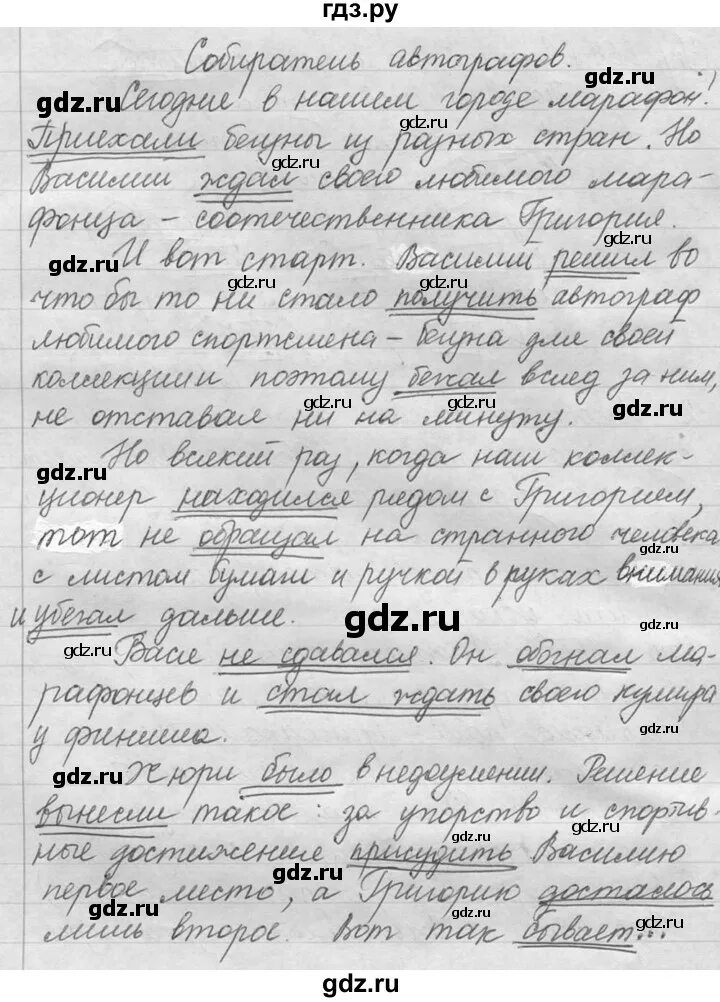 гдз.ру
Собиратель автографов.
Сегодня в нашем городе марафон!
Приехали бегуны из разных стран. Но
Василий ждал своего любимого мара-
фонца – соотечественника Григория.
И вот старт. Василий решил во
что бы то ни стало получить автограф
любимого спортсмена – бегуна для своей
коллекции и поэтому бежал вслед за ним,
не отставал ни на минуту.
Но всякий раз, когда наш коллек-
ционер находился рядом с Григорием,
тот не обращал на странного человека
с листом бумаги и ручкой в руках внимания
и убегал дальше.
Вася не сдавался. Он обогнал ма-
рафонцев и стал ждать своего кумира
у финиша.
Жюри было в недоумении. Решение
вынесли такое: за упорство и спортив-
ные достижения присудить Василию
первое место, а Григорию досталось
лишь второе. Вот так бывает...
gdz.ru